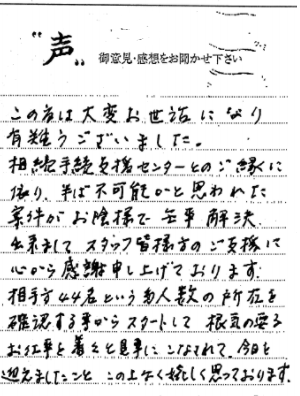 "声" 御意見・感想をお聞かせ下さい
この度は大変お世話になり
有難うございました。
相続手続支援センターとのご縁に
依り、半ば不可能かと思われた
案件がお陰様で無事解決
出来まして スタッフ皆様方のご支援に
心から感謝申し上げております。
相手方44名という多人数の所在を
確認する事からスタートして 根気の要る
お仕事を着々と見事にこなされて、今日を
迎えましたこと この上なく嬉しく思っております。